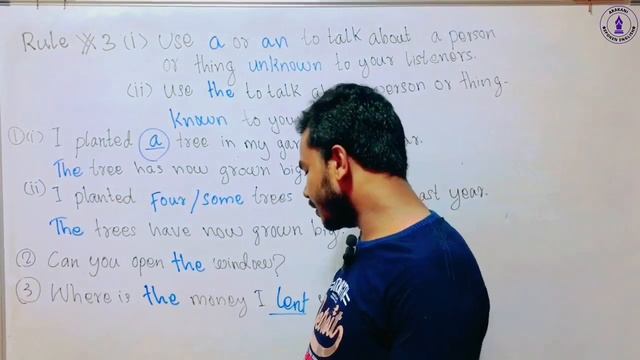 Rule 3 (i) Use a or an to talk about a person
or thing unknown to your listeners.
(ii) Use the to talk person or thing
Known to
① (i) I planted a tree in my
The tree has now grown big
(ii) I planted Four/some trees last year.
The trees have now grown big.
② Can you open the window?
③ Where is the money I lent
SPOKEN ENGLISH